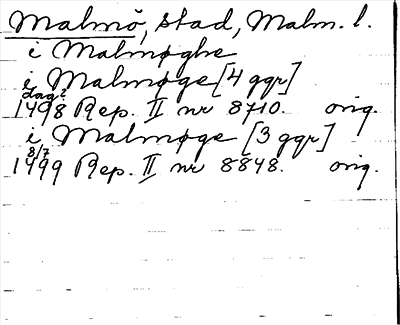 Malmö, stad, Malm. l.
i Malmøghe
i Malmøge [4 ggr]
dag?
1498 Rep. II nr 8710. orig.
i Malmøge [3 ggr]
8/7
1499 Rep. II nr 8848. orig.